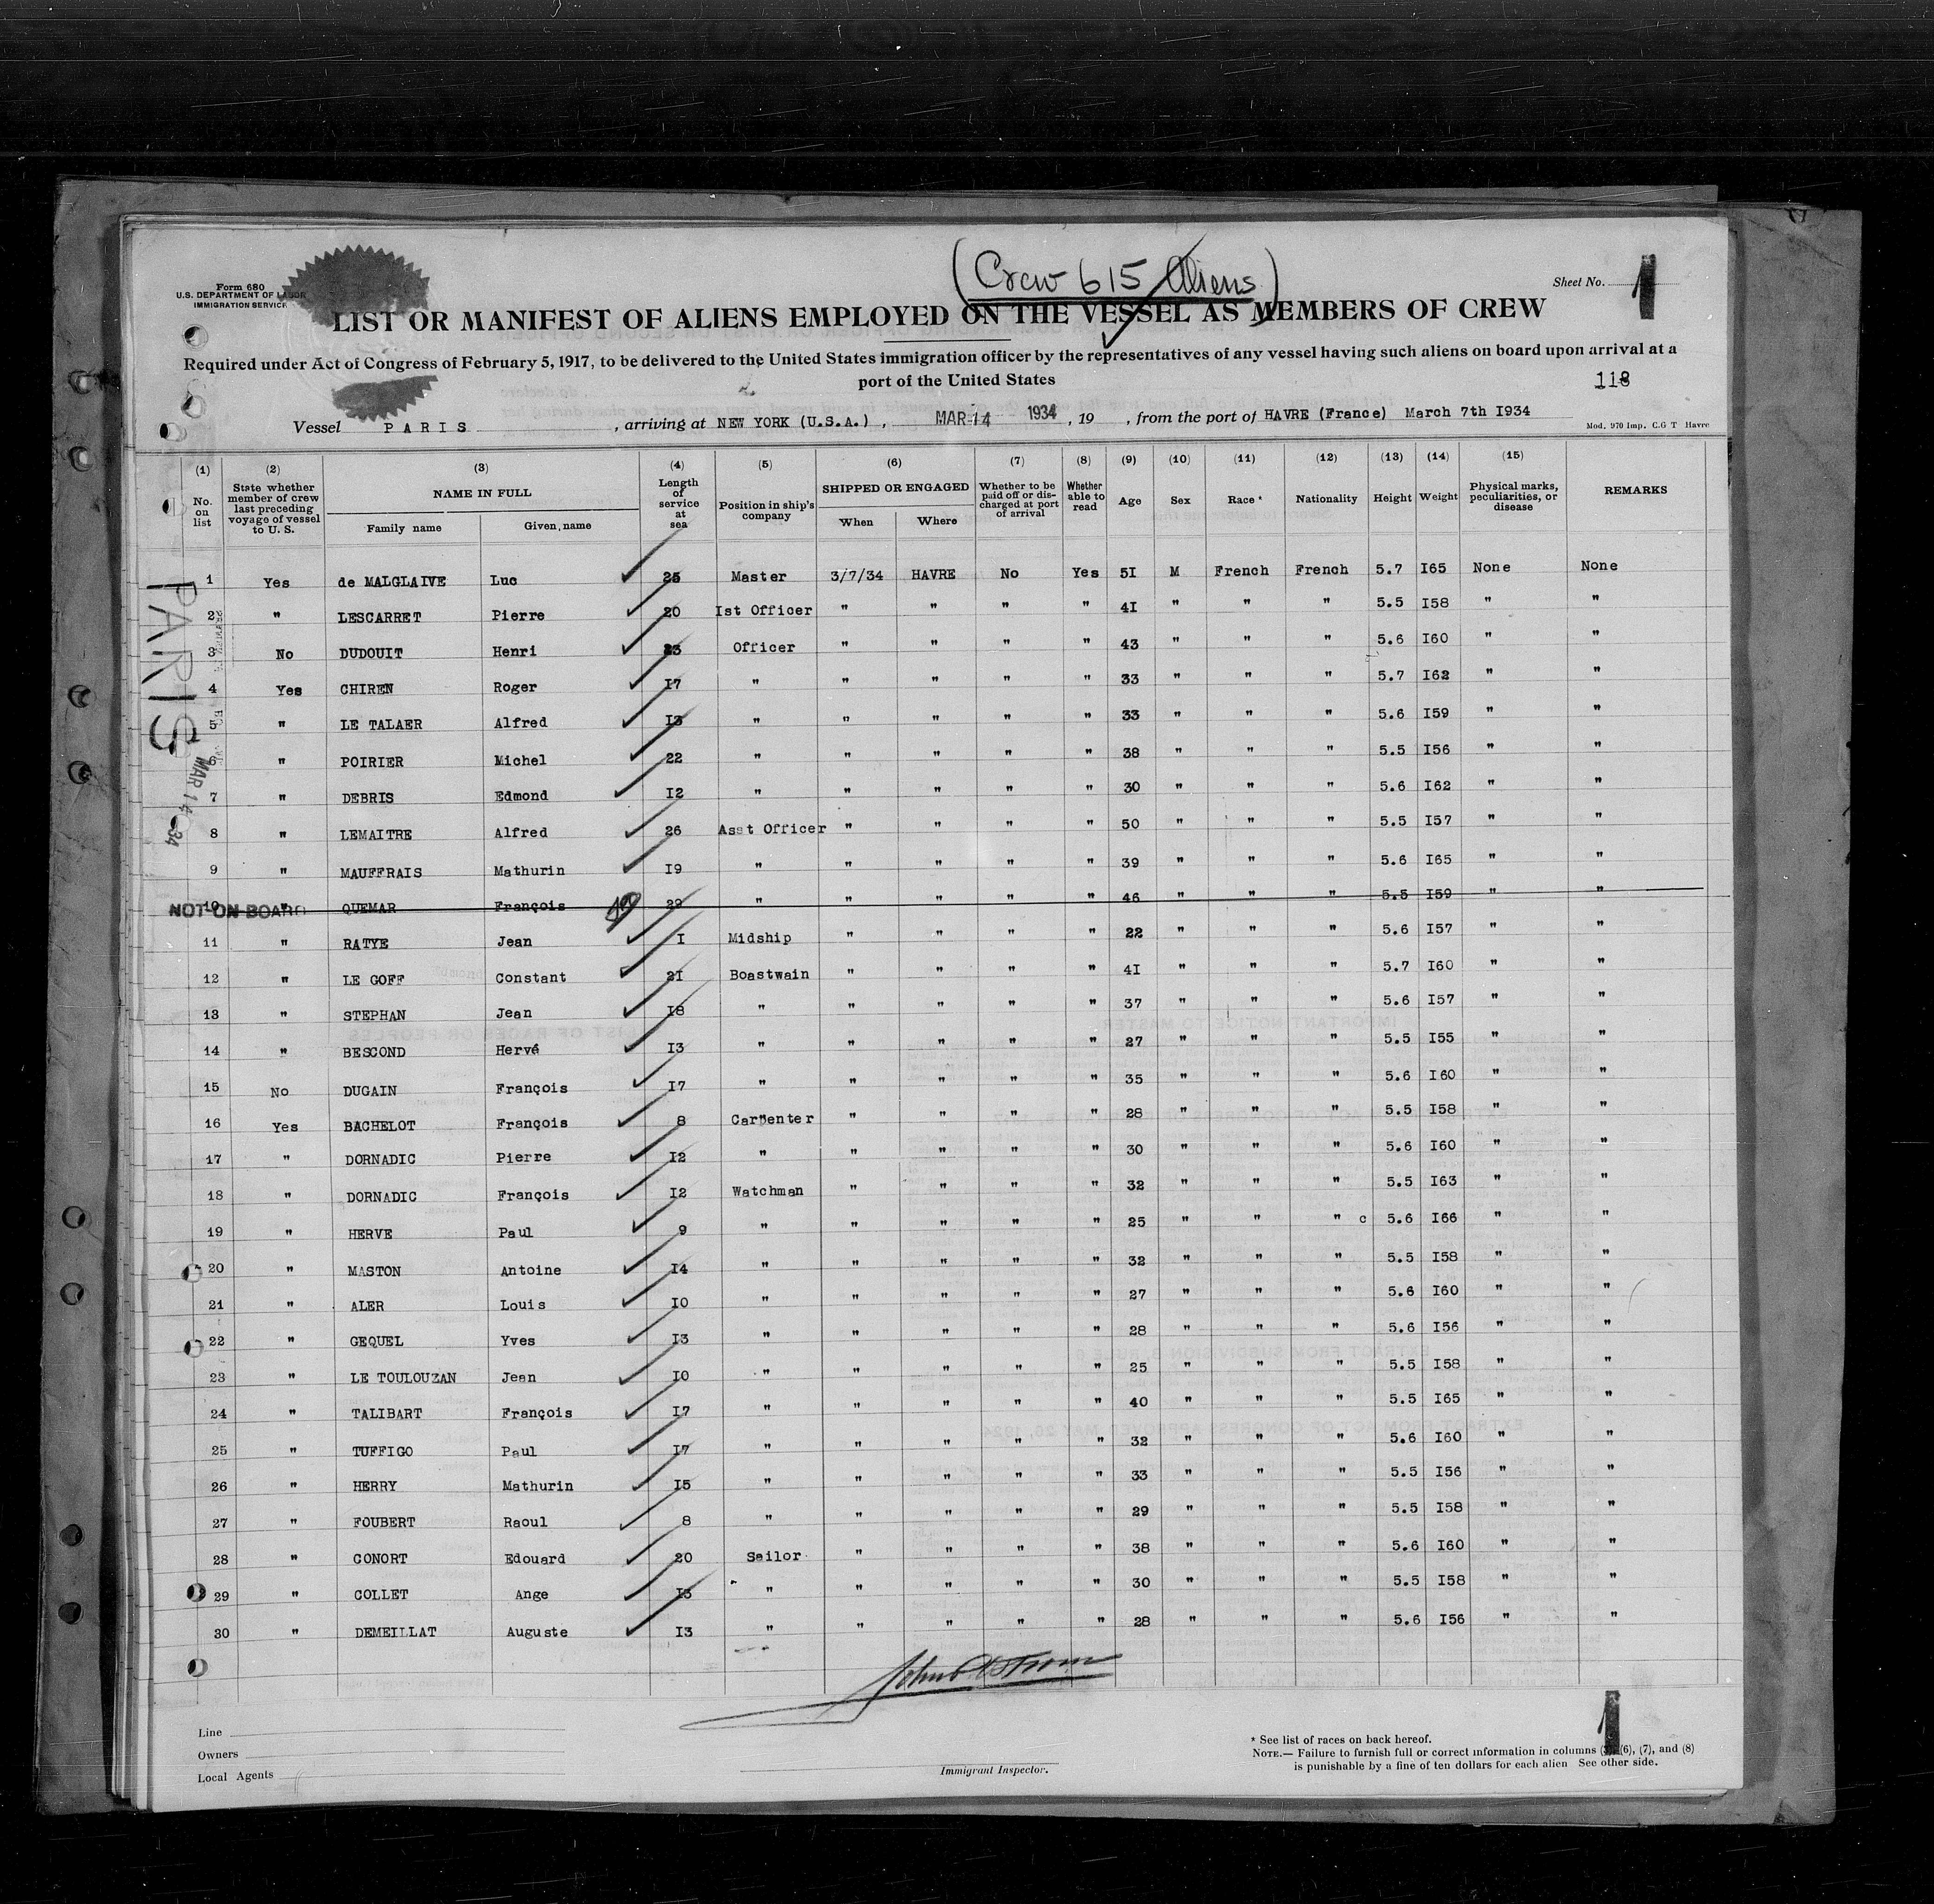 (Crew 615 Aliens)
Form 680
U.S. DEPARTMENT OF LABOR
IMMIGRATION SERVICE
Sheet No. 1
LIST OR MANIFEST OF ALIENS EMPLOYED ON THE VESSEL AS MEMBERS OF CREW
Required under Act of Congress of February 5, 1917, to be delivered to the United States immigration officer by the representatives of any vessel having such aliens on board upon arrival at a
port of the United States
118
Vessel PARIS, arriving at NEW YORK (U.S.A.), MAR 14 1934, 19 , from the port of HAVRE (France) March 7th I934
Mod. 970 Imp. C.G T Havre
(1) (2) (3) (4) (5) (6) (7) (8) (9) (10) (11) (12) (13) (14) (15)
No. on list | State whether member of crew last preceding voyage of vessel to U. S. | NAME IN FULL Family name Given name | Length of service at sea | Position in ship's company | SHIPPED OR ENGAGED When Where | Whether to be paid off or discharged at port of arrival | Whether able to read | Age | Sex | Race * | Nationality | Height | Weight | Physical marks, peculiarities, or disease | REMARKS
1 Yes de MALGLAIVE Luc 25 Master 3/7/34 HAVRE No Yes 5I M French French 5.7 I65 None None
2 " LESCARRET Pierre 20 Ist Officer " " " " 4I " " " 5.5 I58 " "
3 No DUDOUIT Henri 23 Officer " " " " 43 " " " 5.6 I60 " "
4 Yes CHIREN Roger I7 " " " " " 33 " " " 5.7 I62 " "
5 " LE TALAER Alfred I3 " " " " " 33 " " " 5.6 I59 " "
6 " POIRIER Michel 22 " " " " " 38 " " " 5.5 I56 " "
7 " DEBRIS Edmond I2 " " " " " 30 " " " 5.6 I62 " "
8 " LEMAITRE Alfred 26 Asst Officer " " " " 50 " " " 5.5 I57 " "
9 " MAUFFRAIS Mathurin I9 " " " " " 39 " " " 5.6 I65 " "
NOT ON BOARD 10 " QUEMAR François 29 " " " " " 46 " " " 5.5 I59 " "
11 " RATYE Jean I Midship " " " " 22 " " " 5.6 I57 " "
12 " LE GOFF Constant 2I Boastwain " " " " 4I " " " 5.7 I60 " "
13 " STEPHAN Jean I8 " " " " " 37 " " " 5.6 I57 " "
14 " BESCOND Hervé I3 " " " " " 27 " " " 5.5 I55 " "
15 No DUGAIN François I7 " " " " " 35 " " " 5.6 I60 " "
16 Yes BACHELOT François 8 Carpenter " " " " 28 " " " 5.5 I58 " "
17 " DORNADIC Pierre I2 " " " " " 30 " " " 5.6 I60 " "
18 " DORNADIC François I2 Watchman " " " " 32 " " " 5.5 I63 " "
19 " HERVE Paul 9 " " " " " 25 " " " c 5.6 I66 " "
20 " MASTON Antoine I4 " " " " " 32 " " " 5.5 I58 " "
21 " ALER Louis I0 " " " " " 27 " " " 5.6 I60 " "
22 " GEQUEL Yves I3 " " " " " 28 " " " 5.6 I56 " "
23 " LE TOULOUZAN Jean I0 " " " " " 25 " " " 5.5 I58 " "
24 " TALIBART François I7 " " " " " 40 " " " 5.5 I65 " "
25 " TUFFIGO Paul I7 " " " " " 32 " " " 5.6 I60 " "
26 " HERRY Mathurin I5 " " " " " 33 " " " 5.5 I56 " "
27 " FOUBERT Raoul 8 " " " " " 29 " " " 5.5 I58 " "
28 " CONORT Edouard 20 Sailor " " " " 38 " " " 5.6 I60 " "
29 " COLLET Ange I3 " " " " " 30 " " " 5.5 I58 " "
30 " DEMEILLAT Auguste I3 " " " " " 28 " " " 5.6 I56 " "
PARIS
MAR 14 34
Line
Owners
Local Agents
Immigrant Inspector.
* See list of races on back hereof.
NOTE.— Failure to furnish full or correct information in columns (6), (7), and (8)
is punishable by a fine of ten dollars for each alien See other side.
1